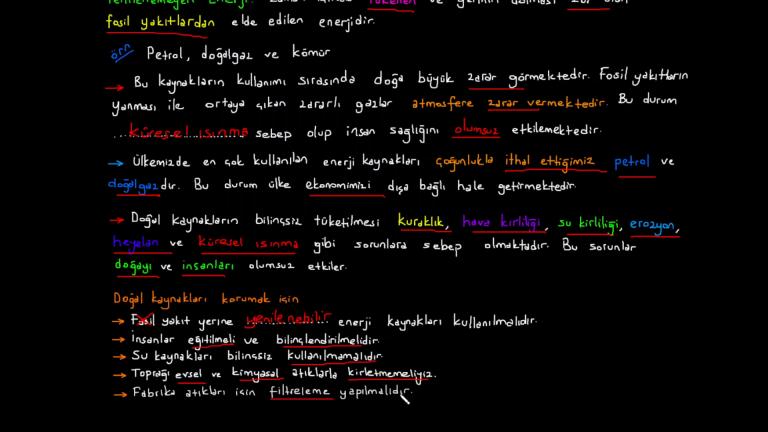 Yenilenemeyen Enerji: tükenen ve yerinin dolması zor olan
fosil yakıtlardan elde edilen enerjidir.
örn Petrol, doğalgaz ve kömür
→ Bu kaynakların kullanımı sırasında doğa büyük zarar görmektedir. Fosil yakıtların
yanması ile ortaya çıkan zararlı gazlar atmosfere zarar vermektedir. Bu durum
küresel ısınma sebep olup insan sağlığını olumsuz etkilemektedir.
→ Ülkemizde en çok kullanılan enerji kaynakları çoğunlukla ithal ettiğimiz petrol ve
doğalgazdır. Bu durum ülke ekonomimizi dışa bağlı hale getirmektedir.
→ Doğal kaynakların bilinçsiz tüketilmesi kuraklık, hava kirliliği, su kirliliği, erozyon,
heyelan ve küresel ısınma gibi sorunlara sebep olmaktadır. Bu sorunlar
doğayı ve insanları olumsuz etkiler.
Doğal kaynakları korumak için
→ Fosil yakıt yerine yenilenebilir enerji kaynakları kullanılmalıdır.
→ İnsanlar eğitilmeli ve bilinçlendirilmelidir.
→ Su kaynakları bilinçsiz kullanılmamalıdır.
→ Toprağı evsel ve kimyasal atıklarla kirletmemeliyiz.
→ Fabrika atıkları için filtreleme yapılmalıdır.